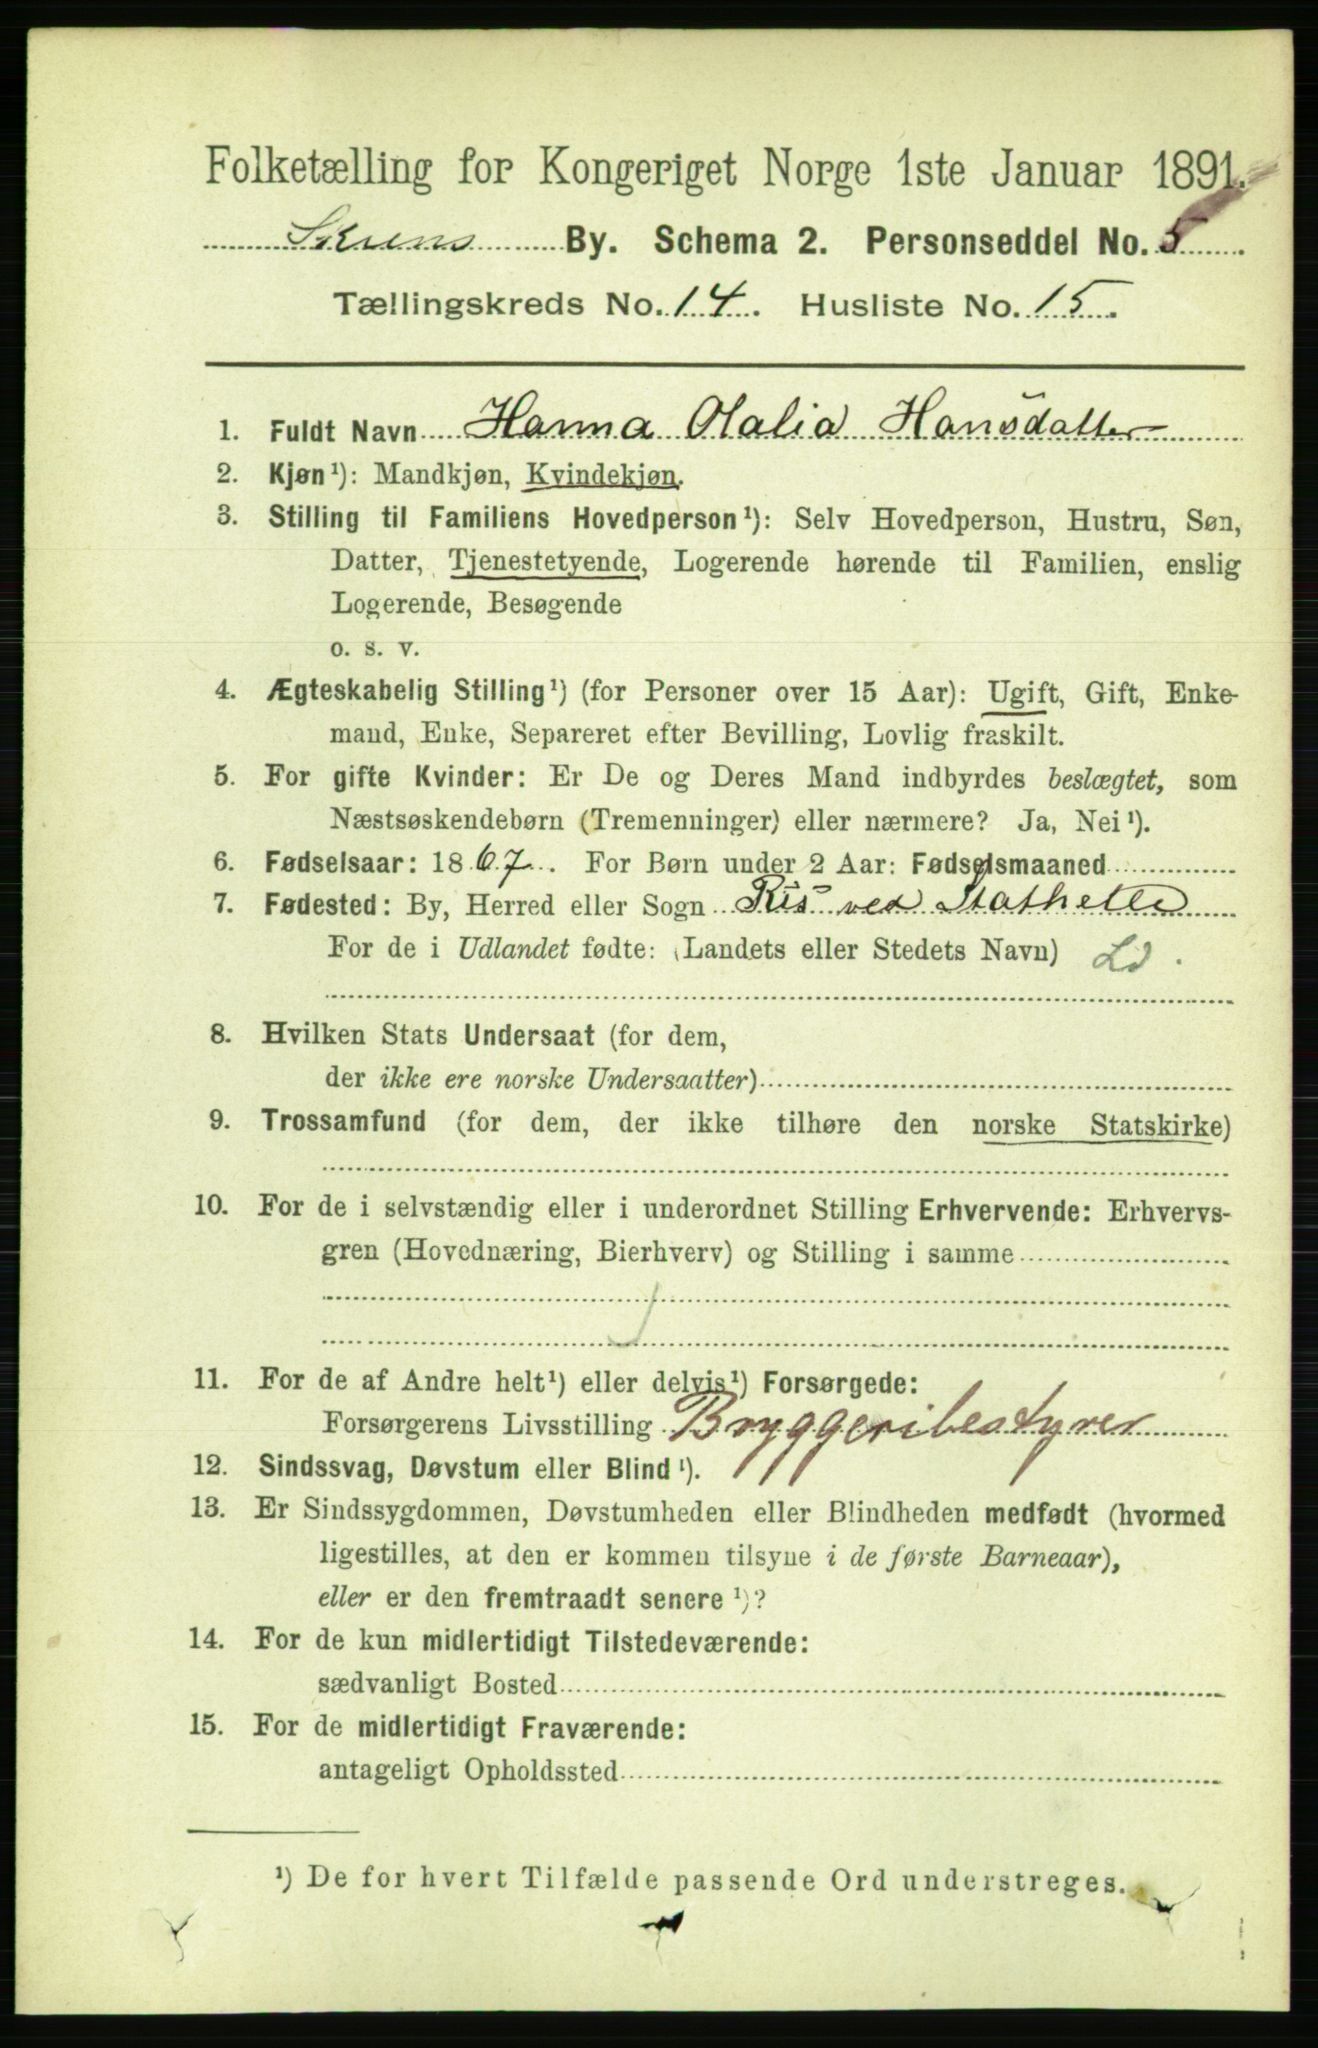 Folketælling for Kongeriget Norge 1ste Januar 1891.
Skiens By. Schema 2. Personseddel No. 5
Tællingskreds No. 14. Husliste No. 15.
1. Fuldt Navn Hanna Olalia Hansdatter
2. Kjøn¹): Mandkjøn, Kvindekjøn.
3. Stilling til Familiens Hovedperson¹): Selv Hovedperson, Hustru, Søn,
Datter, Tjenestetyende, Logerende hørende til Familien, enslig
Logerende, Besøgende
o. s. v.
4. Ægteskabelig Stilling¹) (for Personer over 15 Aar): Ugift, Gift, Enke-
mand, Enke, Separeret efter Bevilling, Lovlig fraskilt.
5. For gifte Kvinder: Er De og Deres Mand indbyrdes beslægtet, som
Næstsøskendebørn (Tremenninger) eller nærmere? Ja, Nei¹).
6. Fødselsaar: 1867. For Børn under 2 Aar: Fødselsmaaned
7. Fødested: By, Herred eller Sogn Ris ved Stathelle
For de i Udlandet fødte: (Landets eller Stedets Navn) Ld.
8. Hvilken Stats Undersaat (for dem,
der ikke ere norske Undersaatter)
9. Trossamfund (for dem, der ikke tilhøre den norske Statskirke)
10. For de i selvstændig eller i underordnet Stilling Erhvervende: Erhvervs-
gren (Hovednæring, Bierhverv) og Stilling i samme
11. For de af Andre helt¹) eller delvis¹) Forsørgede:
Forsørgerens Livsstilling Bryggeribestyrer
12. Sindssvag, Døvstum eller Blind¹).
13. Er Sindssygdommen, Døvstumheden eller Blindheden medfødt (hvormed
ligestilles, at den er kommen tilsyne i de første Barneaar),
eller er den fremtraadt senere¹)?
14. For de kun midlertidigt Tilstedeværende:
sædvanligt Bosted
15. For de midlertidigt Fraværende:
antageligt Opholdssted
¹) De for hvert Tilfælde passende Ord understreges.